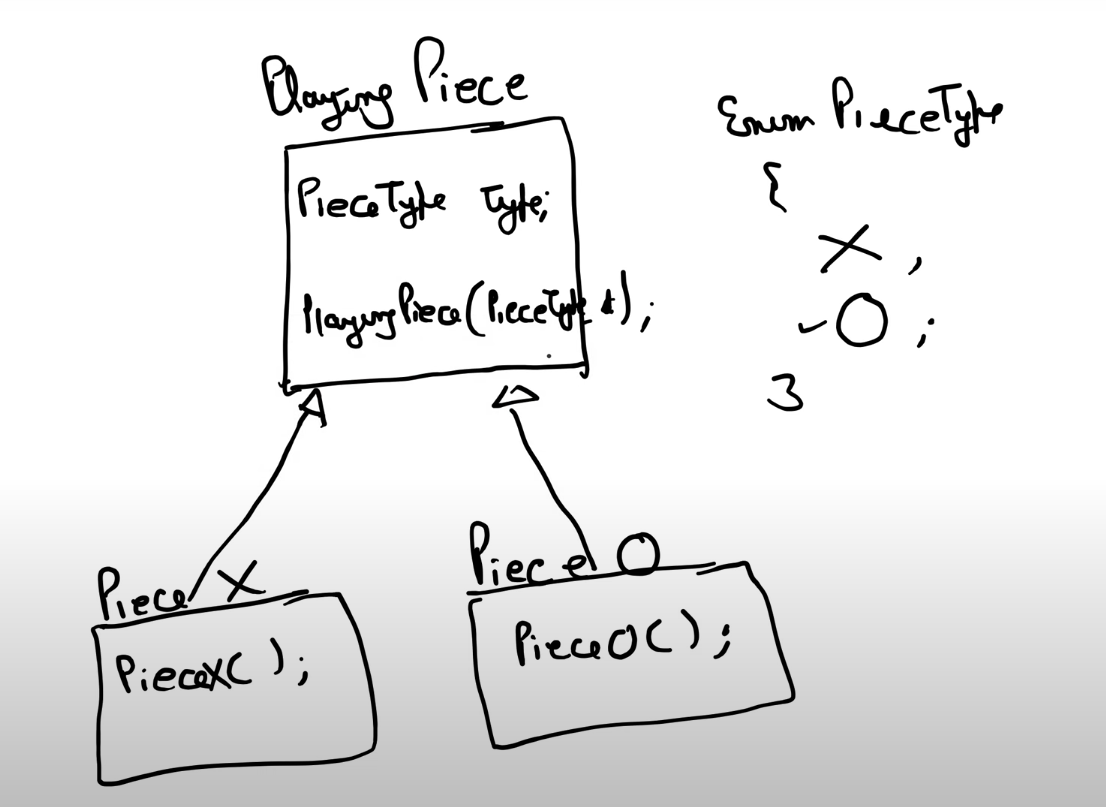 Playing Piece
PieceType type;
PlayingPiece(PieceType t);
Enum PieceType
{
X ,
O ;
}
Piece X
PieceX( );
Piece O
PieceO( );